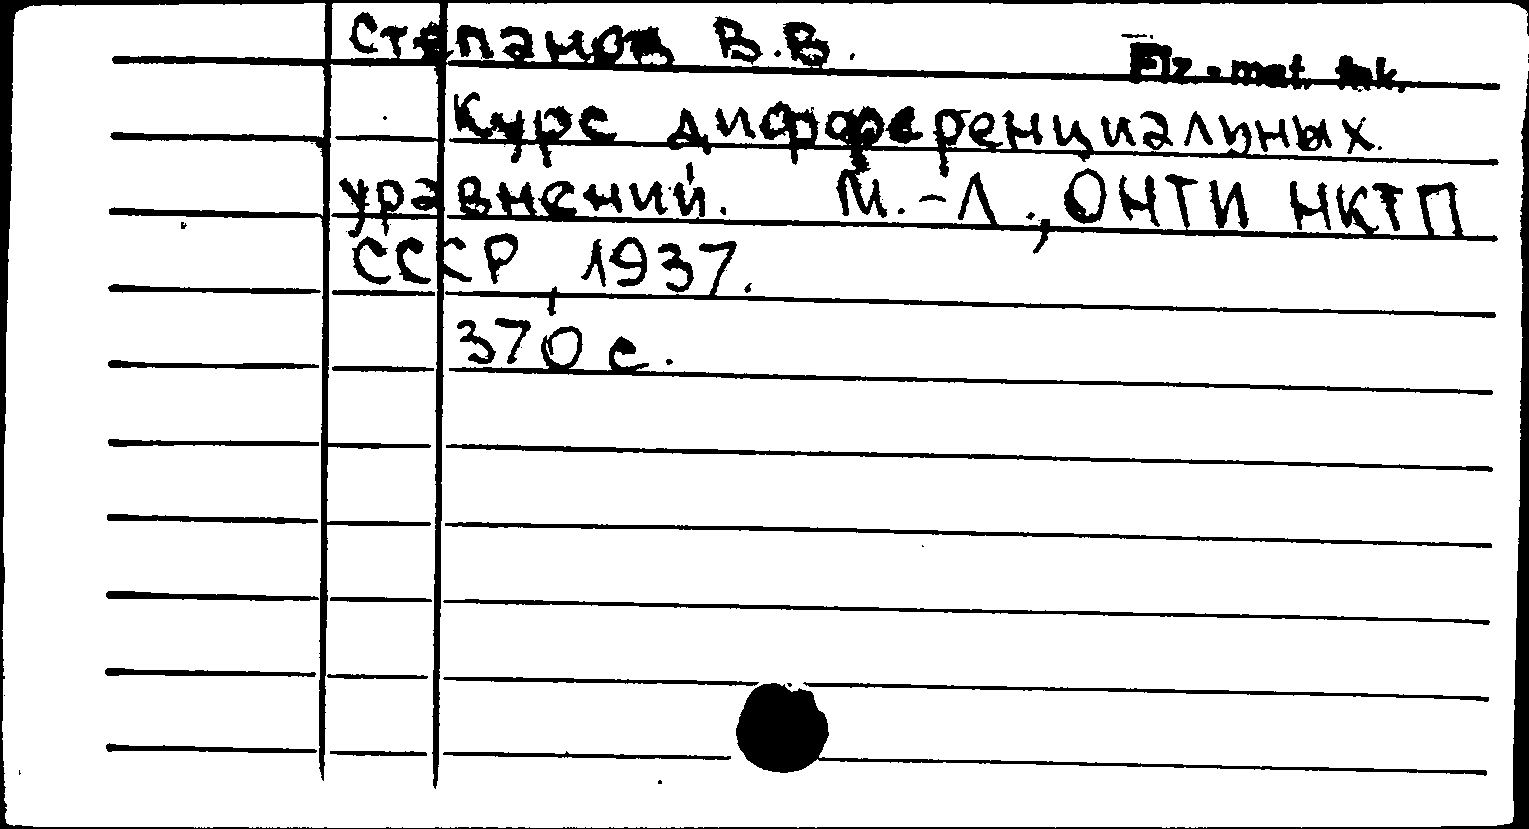 Степанов В.В.
Fiz.-mat. fak.
Курс дифференциальных
уравнений. М.-Л., ОНТИ НКТП
СССР, 1937.
370 с.